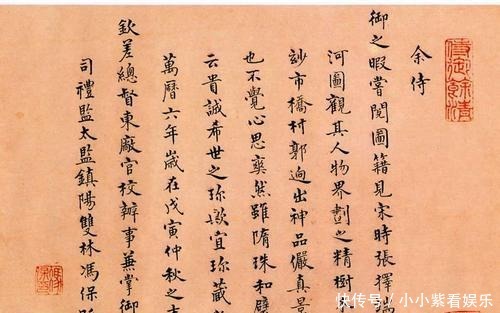 余侍
御之暇嘗閱圖籍見宋時張擇端
河圖觀其人物界劃之精樹
玅市橋村郭迥出神品儼真景
也不覺心思爽然雖隋珠和璧
云貴誠希世之珍歟宜珍藏
萬曆六年歲在戊寅仲秋之吉
欽差總督東廠官校辦事兼掌御
司禮監太監鎮陽雙林馮保
快传号/小小紫看娱乐